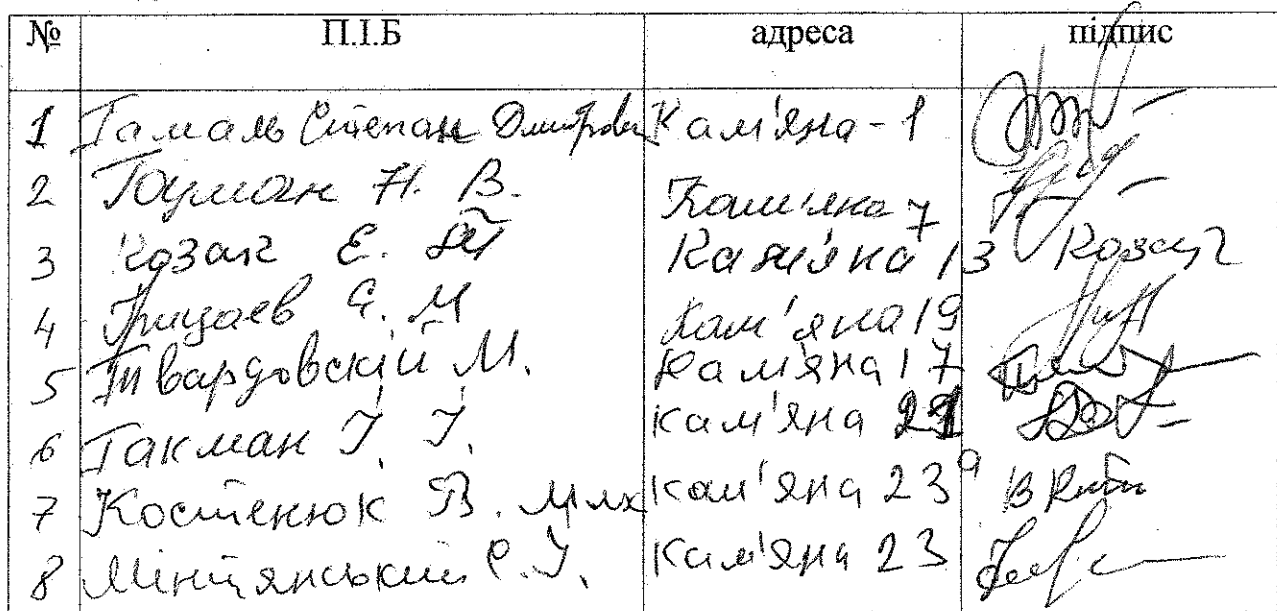 № П.І.Б адреса підпис
1 Гамаль Степан Дмитрович Кам'яна - 1
2 Гауман Н. В. Кам'яна 7
3 Козак Е. Кам'яна 13 Козак
4 Грицаев С. М Кам'яна 19
5 Твардовскій М. Кам'яна 17
6 Гакман І. І. Кам'яна 21
7 Костенюк В. Кам'яна 23а
8 Мінтянський С. І. Кам'яна 23